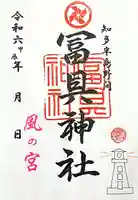 知多半島野間
冨具神社
風の宮
令和六甲辰年 月 日